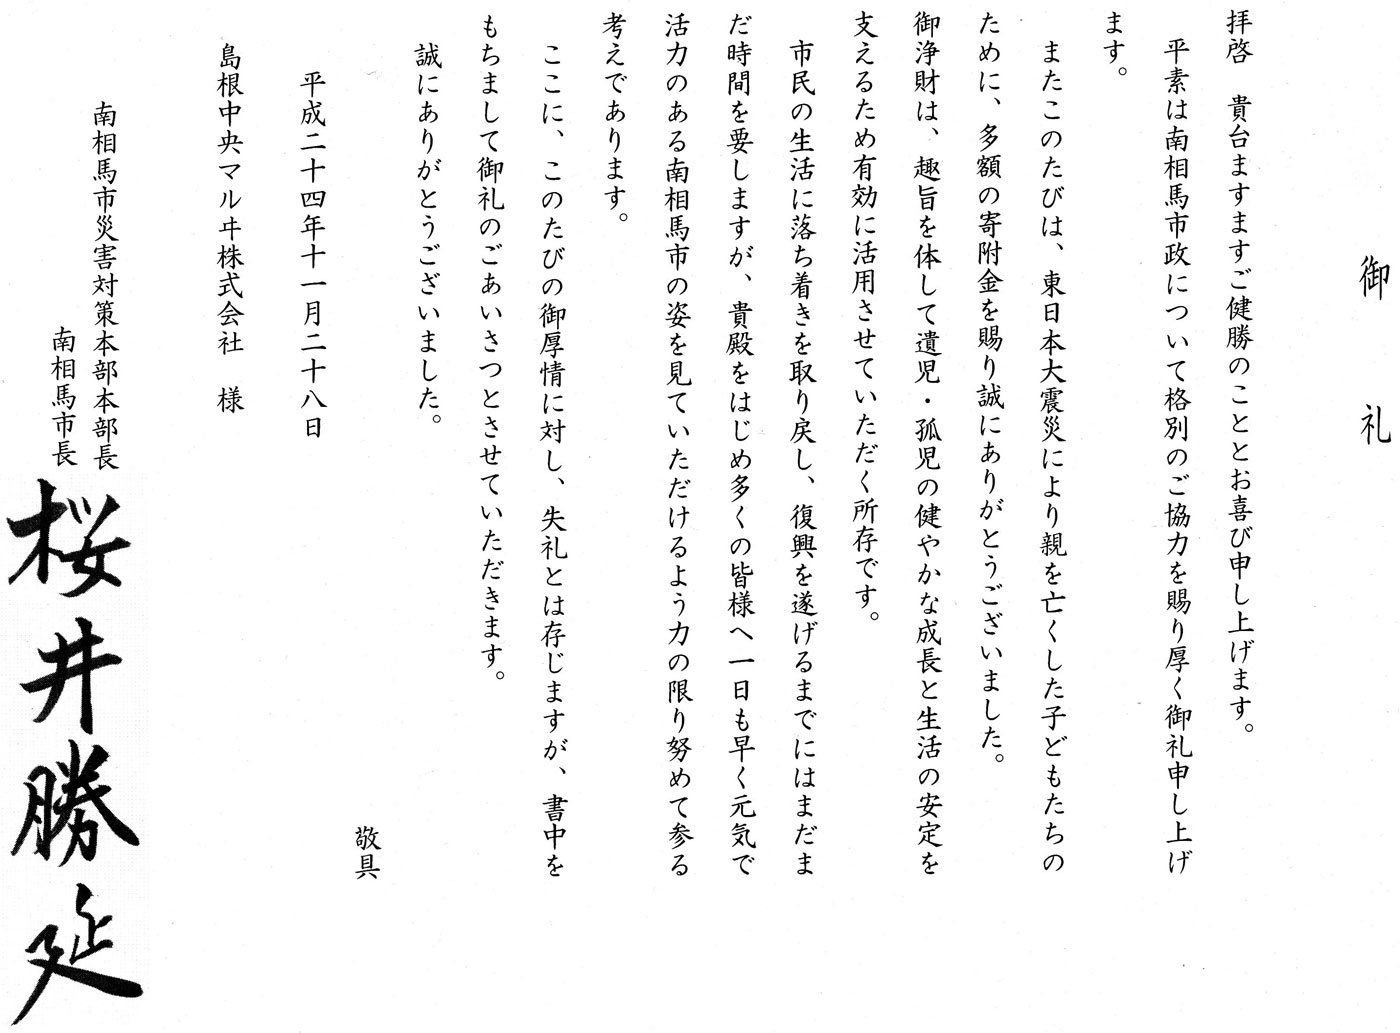 御礼
拝啓　貴台ますますご健勝のこととお喜び申し上げます。
平素は南相馬市政について格別のご協力を賜り厚く御礼申し上げ
ます。
またこのたびは、東日本大震災により親を亡くした子どもたちの
ために、多額の寄附金を賜り誠にありがとうございました。
御浄財は、趣旨を体して遺児・孤児の健やかな成長と生活の安定を
支えるため有効に活用させていただく所存です。
市民の生活に落ち着きを取り戻し、復興を遂げるまでにはまだま
だ時間を要しますが、貴殿をはじめ多くの皆様へ一日も早く元気で
活力のある南相馬市の姿を見ていただけるよう力の限り努めて参る
考えであります。
ここに、このたびの御厚情に対し、失礼とは存じますが、書中を
もちまして御礼のごあいさつとさせていただきます。
誠にありがとうございました。
敬具
平成二十四年十一月二十八日
島根中央マルヰ株式会社　様
南相馬市災害対策本部本部長
南相馬市長
桜井勝延